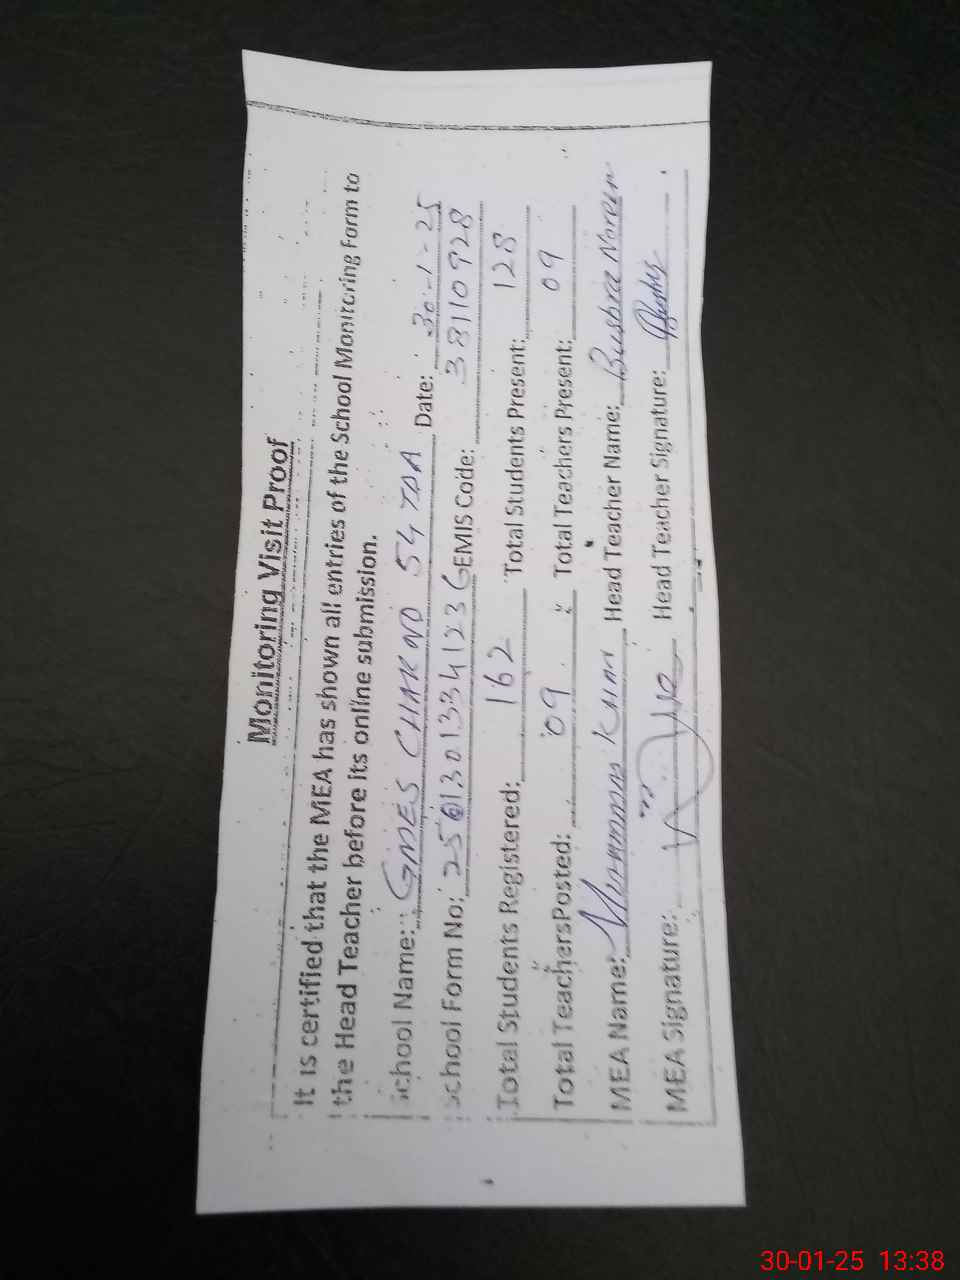 Monitoring Visit Proof
It is certified that the MEA has shown all entries of the School Monitoring Form to
the Head Teacher before its online submission.
School Name: GMES CHAK NO 54 TDA Date: 30-1-25
School Form No: 25013013341236 EMIS Code: 38110928
Total Students Registered: 162 Total Students Present: 128
Total Teachers Posted: 09 Total Teachers Present: 09
MEA Name: Khan Head Teacher Name: Bushra Noreen
MEA Signature: Head Teacher Signature: Bushra
30-01-25 13:38